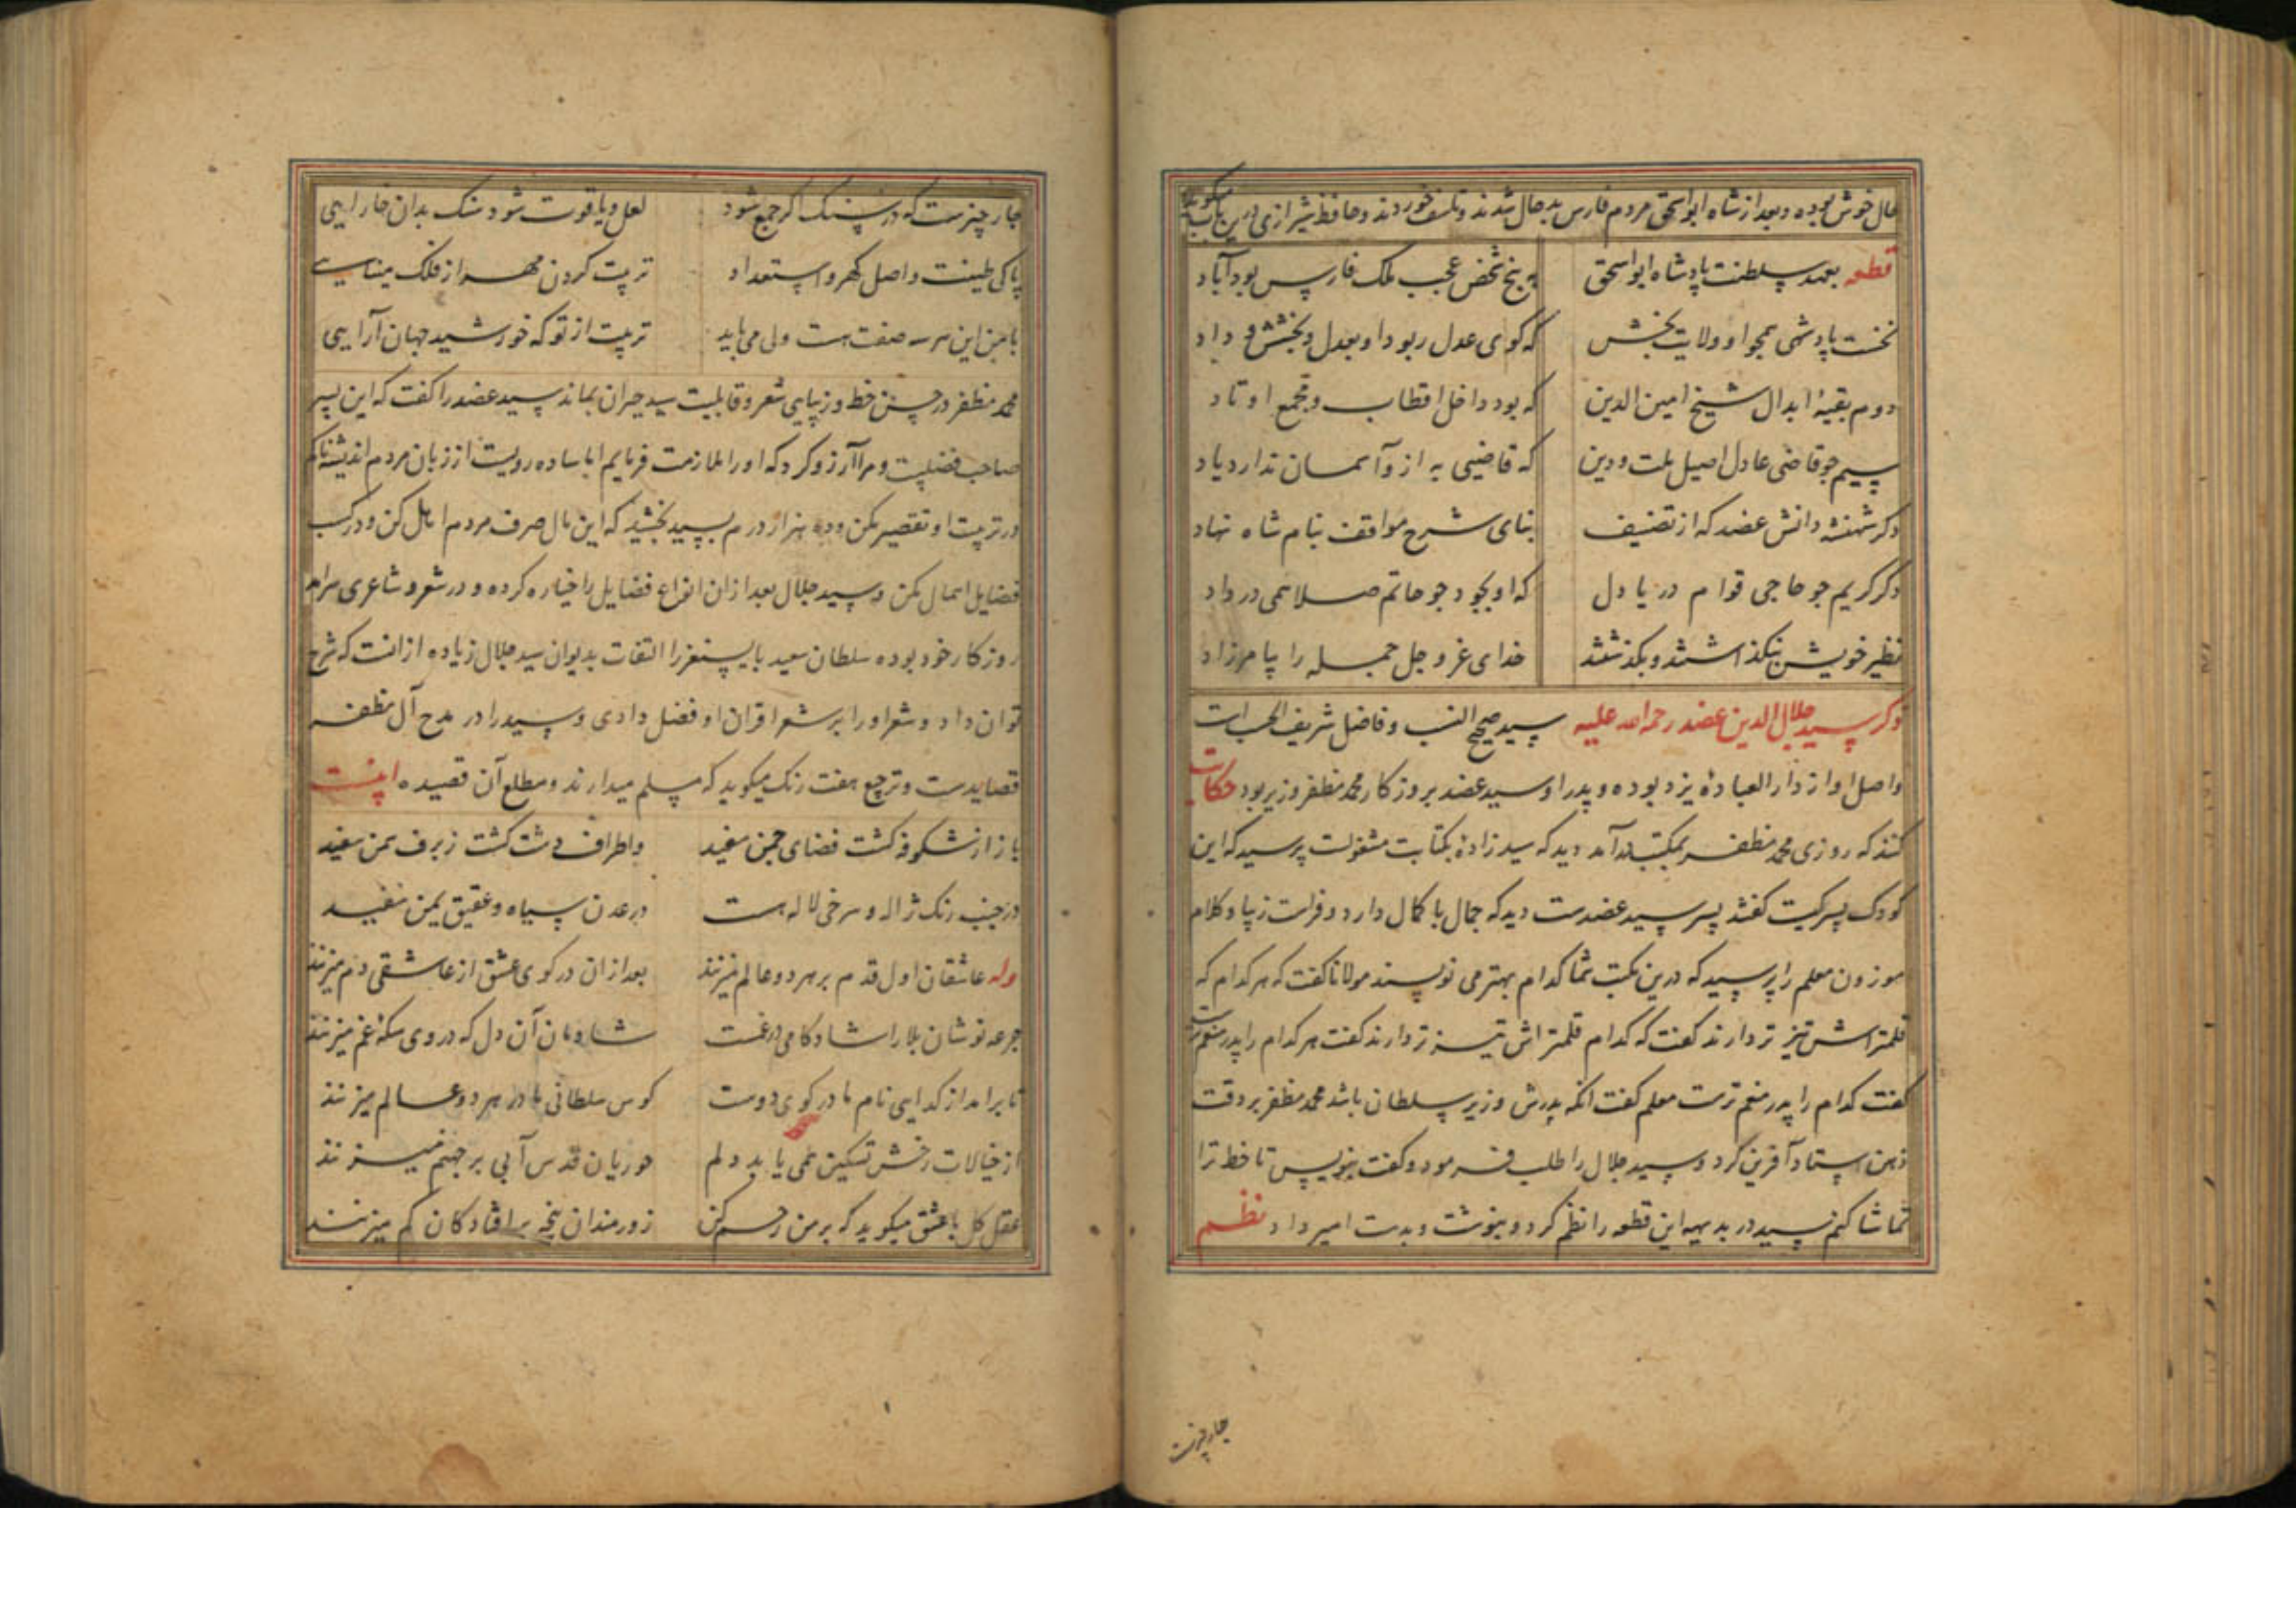 حال خوش بوده و بعد از شاه ابواسحق مردم فارس بدحال شدند و تاسف خوردند و حافظ شیرازی درین باب میکوید
قطعه بعهد سلطنت پادشاه ابواسحق بپنج شخص عجب ملک فارس بود آباد
نخست پادشهی همچو او ولایت بخش که کوی عدل ربود او بعدل و بخشش و داد
دوم بقیهٔ ابدال شیخ امین الدین که بود داخل اقطاب و مجمع اوتاد
سیم چو قاضی عادل اصیل ملت و دین که قاضیی به ازو آسمان ندارد یاد
دکر شهنشه دانش عضد که از تصنیف بنای شرح مواقف بنام شاه نهاد
دکر کریم چو حاجی قوام دریا دل که او بجود چو حاتم صلا همی درداد
نظیر خویش بنکذاشتند و بکذشتند خدای عز و جل جمله را بیامرزاد
ذکر سید جلال الدین عضد رحمه الله علیه سید صحیح النسب و فاضل شریف الحسب است
و اصل او از دار العبادهٔ یزد بوده و پدر او سید عضد بروزکار محمد مظفر وزیر بود حکایت
کنند که روزی محمد مظفر بمکتب درآمد دید که سید زاده بکتابت مشغولست پرسید که این
کودک پسر کیست کفتند پسر سید عضدست دید که جمال با کمال دارد و فراست زیبا و کلام
موزون معلم را پرسید که درین مکتب شما کدام بهتر می نویسند مولانا کفت که هر کدام که
قلمتراش تیزتر دارند کفت که کدام قلمتراش تیزتر دارند کفت هر کدام را پدر منعم‌ترست
کفت کدام را پدر منعم ترست معلم کفت انکه پدرش وزیر سلطان باشد محمد مظفر بر دقت
ذهن استاد آفرین کرد و سید جلال را طلب فرمود و کفت بنویس تا خط ترا
تماشا کنم سید در بدیهه این قطعه را نظم کرد و بنوشت و بدست امیر داد نظم
چار چیزست
چار چیزست که در سنک اکر جمع شود لعل و یاقوت شود سنک بدان خارایی
پاکی طینت و اصل کهر و استعداد تربیت کردن مهر از فلک مینایی
با من این هر سه صفت هست ولی می باید تربیت از تو که خورشید جهان آرایی
محمد مظفر در حسن خط و زیبایی شعر و قابلیت سید حیران بماند سید عضد را کفت که این پسر
صاحب فضلیت و مرا آرزو کرد که او را ملازمت فرمایم اما ساده رویست از زبان مردم اندیشناکم
در تربیت او تقصیر مکن و ده هزار درم بسید بخشید که این مال صرف مردم اهل کن و در کسب
فضایل اهمال مکن و سید جلال بعد از ان انواع فضایل را حیازه کرده و در شعر و شاعری سرآمد
روزکار خود بوده سلطان سعید بایسنغر را التفات بدیوان سید جلال زیاده از انست که شرح
توان داد و شعر او را بر شعر اقران او فضل دادی و سید را در مدح آل مظفر
قصایدست و ترجیع هفت رنک میکوید که مسلم میدارند و مطلع آن قصیده اینست
باز از شکوفه کشت فضای چمن سفید و اطراف دشت کشت ز برف سمن سفید
در جنب رنک ژاله و سرخی لاله هست در عدن سیاه و عقیق یمن سفید
وله عاشقان اول قدم بر هر دو عالم میزنند بعد از ان در کوی عشق از عاشقی دم میزنند
جرعه نوشان بلا را شادکامی در غمست شادمان آن دل که در وی سکهٔ غم میزنند
تا برامد از کدایی نام ما در کوی دوست کوس سلطانی ما در هر دو عالم میزنند
از خیالات رخش تسکین همی یابد دلم حوریان قدس آبی بر جهنم میزنند
عقل کل با عشق میکوید که بر من رحم کن زورمندان پنجه با افتادکان کم میزنند